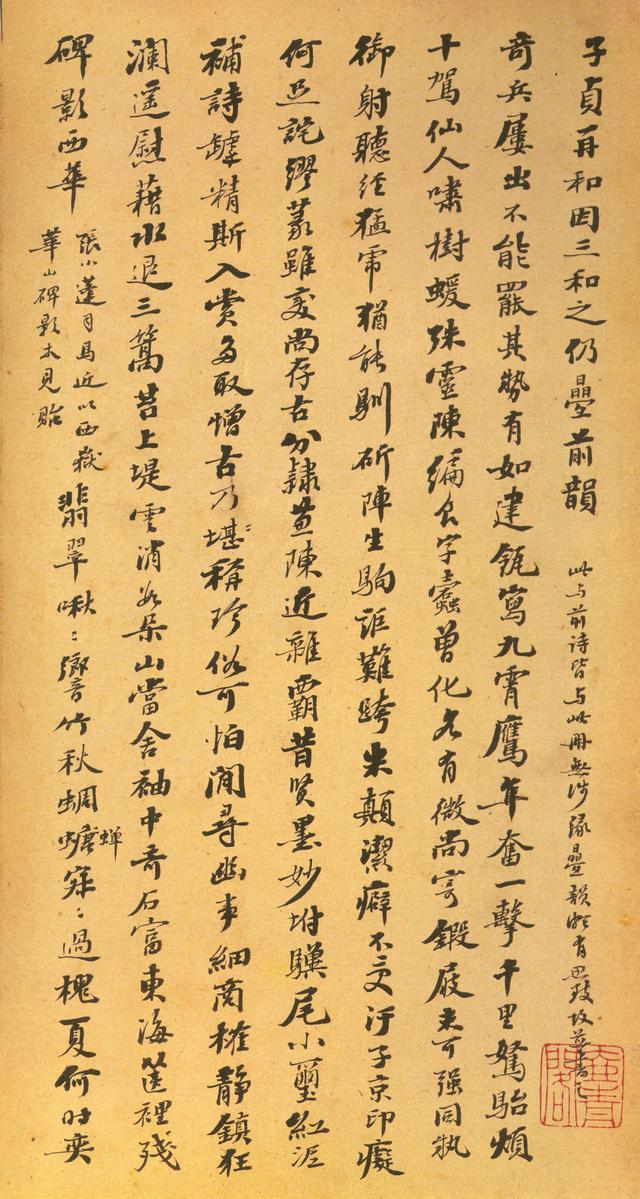 子貞再和因三和之仍疊前韻
此与前詩皆与此冊無涉緣疊韻
奇兵屢出不能罷其勢有如建瓴寫九霄鷹隼奮一擊千里駑駘煩
十駕仙人嘯樹蝯殊靈陳編食字蠹曾化各有微尚寄鍛屐未可强同執
御射聽經猛虎猶能馴斫陣生駒詎難跨米顛潔癖不受汙子京印癡
何足詫繆篆雖变尚存古分隸英陳近雜霸昔賢墨妙坿驥尾小璽紅泥
補詩罅精斯入賞多取憎古乃堪堪稱珍俗可怕閒尋幽事細商榷靜鎮狂
瀾遥慰藉水退三篙苔上堤雲消幾朵山當舍袖中奇石富東海篋裡殘
碑影西華
張小蓬司馬近以西嶽
華山碑影本見貽
翡翠啾啾響竹秋蜩螗寂寂過槐夏何时奕
蟬